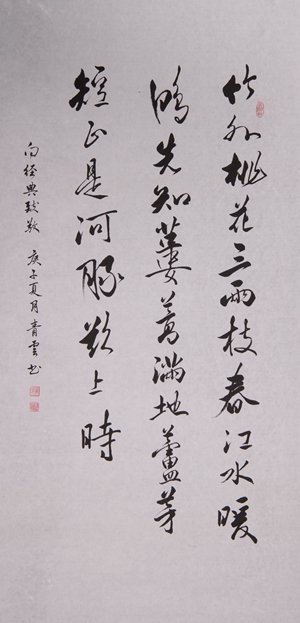 竹外桃花三兩枝春江水暖
鴨先知蔞蒿滿地蘆芽
短正是河豚欲上時
向经典致敬 庚子夏月青雲书